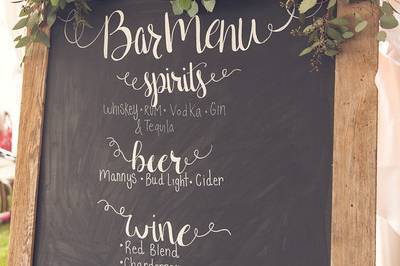 Bar Menu
spirits
Whiskey • Rum • Vodka • Gin
& Tequila
beer
Mannys • Bud Light • Cider
wine
• Red Blend
• Chardonnay